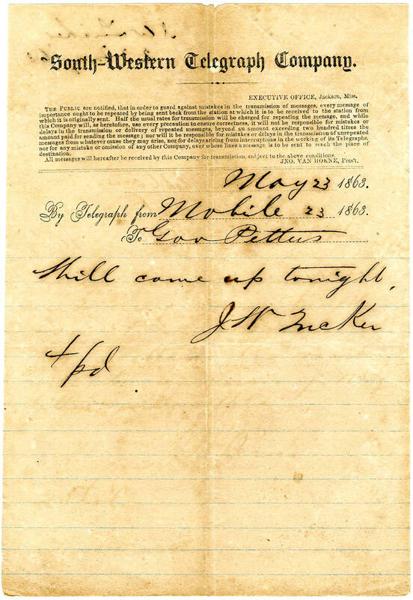 South-Western Telegraph Company.
EXECUTIVE OFFICE, Jackson, Miss.
THE PUBLIC are notified, that in order to guard against mistakes in the transmission of messages, every message of
importance ought to be repeated by being sent back from the station at which it is to be received to the station from
which it is originally sent. Half the usual rates for transmission will be charged for repeating the message, and while
this Company will, as heretofore, use every precaution to ensure correctness, it will not be responsible for mistakes or
delays in the transmission or delivery of repeated messages, beyond an amount exceeding two hundred times the
amount paid for sending the message; nor will it be responsible for mistakes or delays in the transmission of unrepeated
messages from whatever cause they may arise, nor for delays arising from interruptions in the working of its Telegraphs,
nor for any mistake or omission of any other Company, over whose lines a message is to be sent to reach the place of
destination.
All messages will hereafter be received by this Company for transmission, subject to the above conditions.
JNO. VAN HORNE, Pres't.
May 23 1863.
By Telegraph from Mobile 23 1863.
To Gov Pettus
Will come up tonight.
J W Tucker
4 pd